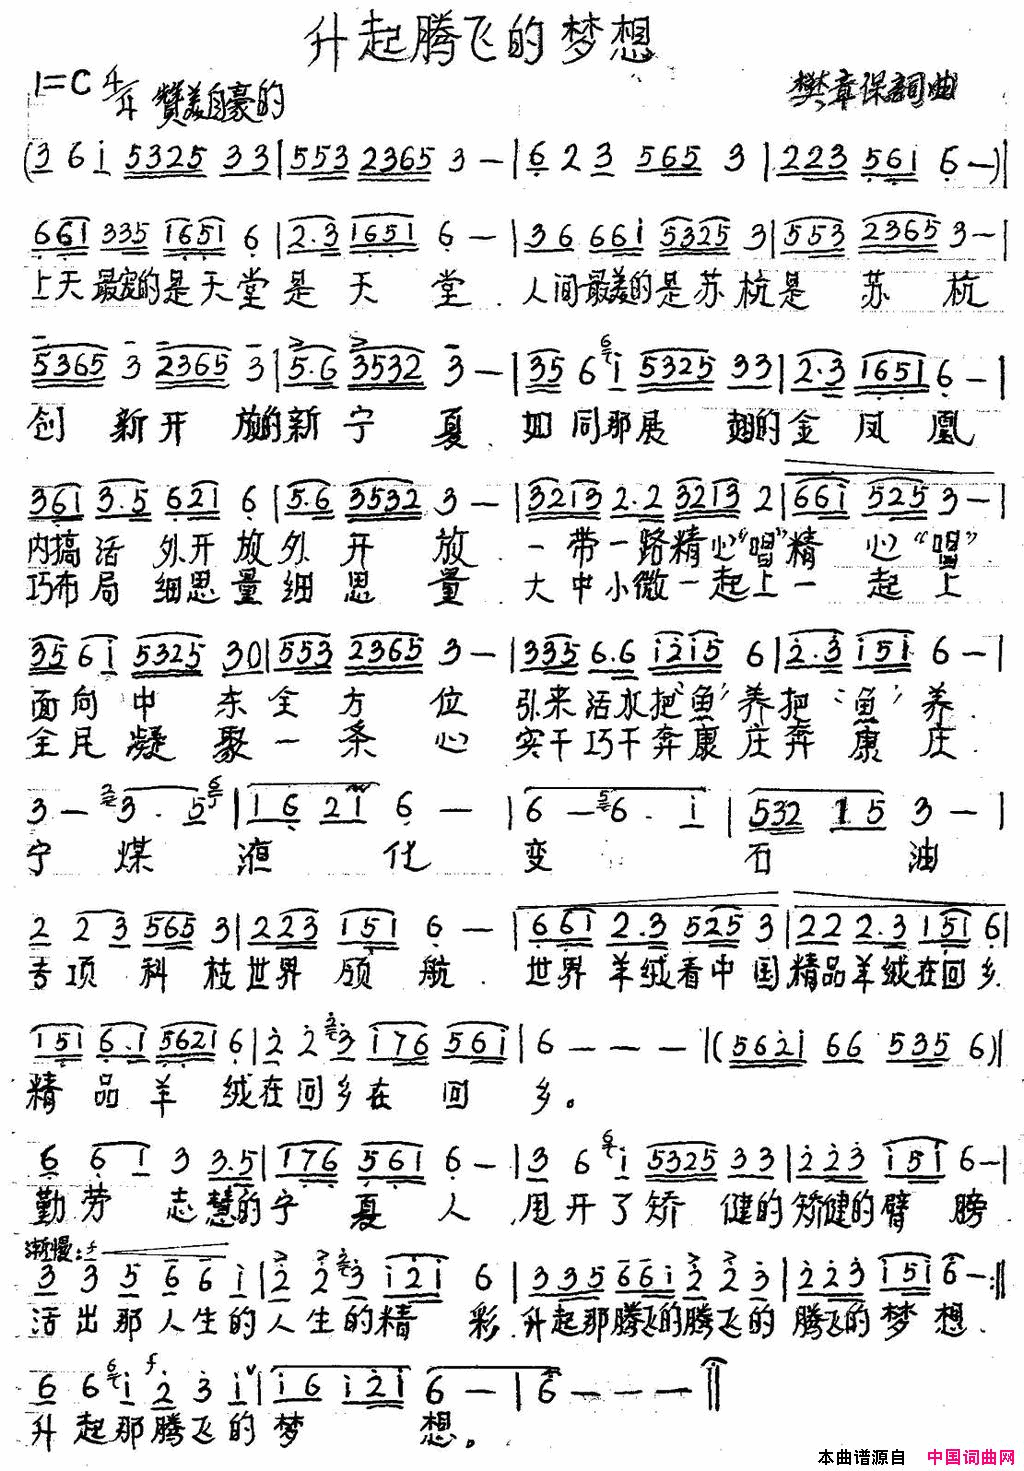 升起腾飞的梦想
1=C 4/4 赞美自豪的 樊章保詞曲
(3 6 i 5325 33 | 553 2365 3 — | 6 2 3 565 3 | 223 561 6 —)|
661 335 1651 6 | 2.3 1651 6 — | 36 661 5325 3 | 553 2365 3 — |
上天最宽的是天堂是天堂.人间最美的是苏杭是苏杭
5365 3 2365 3 | 5.6 3532 3 — | 35 6 i 5325 33 | 2.3 1651 6 — |
创新开放的新宁夏.如同那展翅的金凤凰
361 3.5 621 6 | 5.6 3532 3 — | 3213 2.2 3213 2 | 661 525 3 — |
内搞活外开放外开放.一带一路精心“唱”精心“唱”
巧布局细思量细思量.大中小微一起上一起上
35 6i 5325 30 | 553 2365 3 — | 335 6.6 i2i5 6 | 2.3 i5i 6 — |
面向中东全方位引来活水把‘鱼’养把‘鱼’养.
全民凝聚一条心实干巧干奔康庄奔康庄.
3 — 3. 5 | 16 21 6 — | 6 — 6. i | 532 15 3 — |
宁煤液化变石油
2 23 565 3 | 223 151 6 — | 661 2.3 525 3 | 22 2.3 151 6 |
专项科技世界领航.世界羊绒看中国精品羊绒在回乡.
151 6.1 5621 6 | 2 2 3 i76 56i | 6 — — — |(562i 66 535 6)|
精品羊绒在回乡在回乡。
6 61 3 3.5 | 176 561 6 — | 3 6 i 5325 33 | 223 i5i 6 — |
勤劳志慧的宁夏人.甩开了矫健的矫健的臂膀.
渐慢: f
3 3 5 6 6 i | 2 2 3 i2i 6 | 335 66i 2 2 3 | 223 i5i 6 — :||
活出那人生的人生的精彩.升起那腾飞的腾飞的腾飞的梦想.
6 6 i 2 3 i | i6 i2i 6 — | 6 — — — ||
升起那腾飞的梦想。
本曲谱源自 中国词曲网